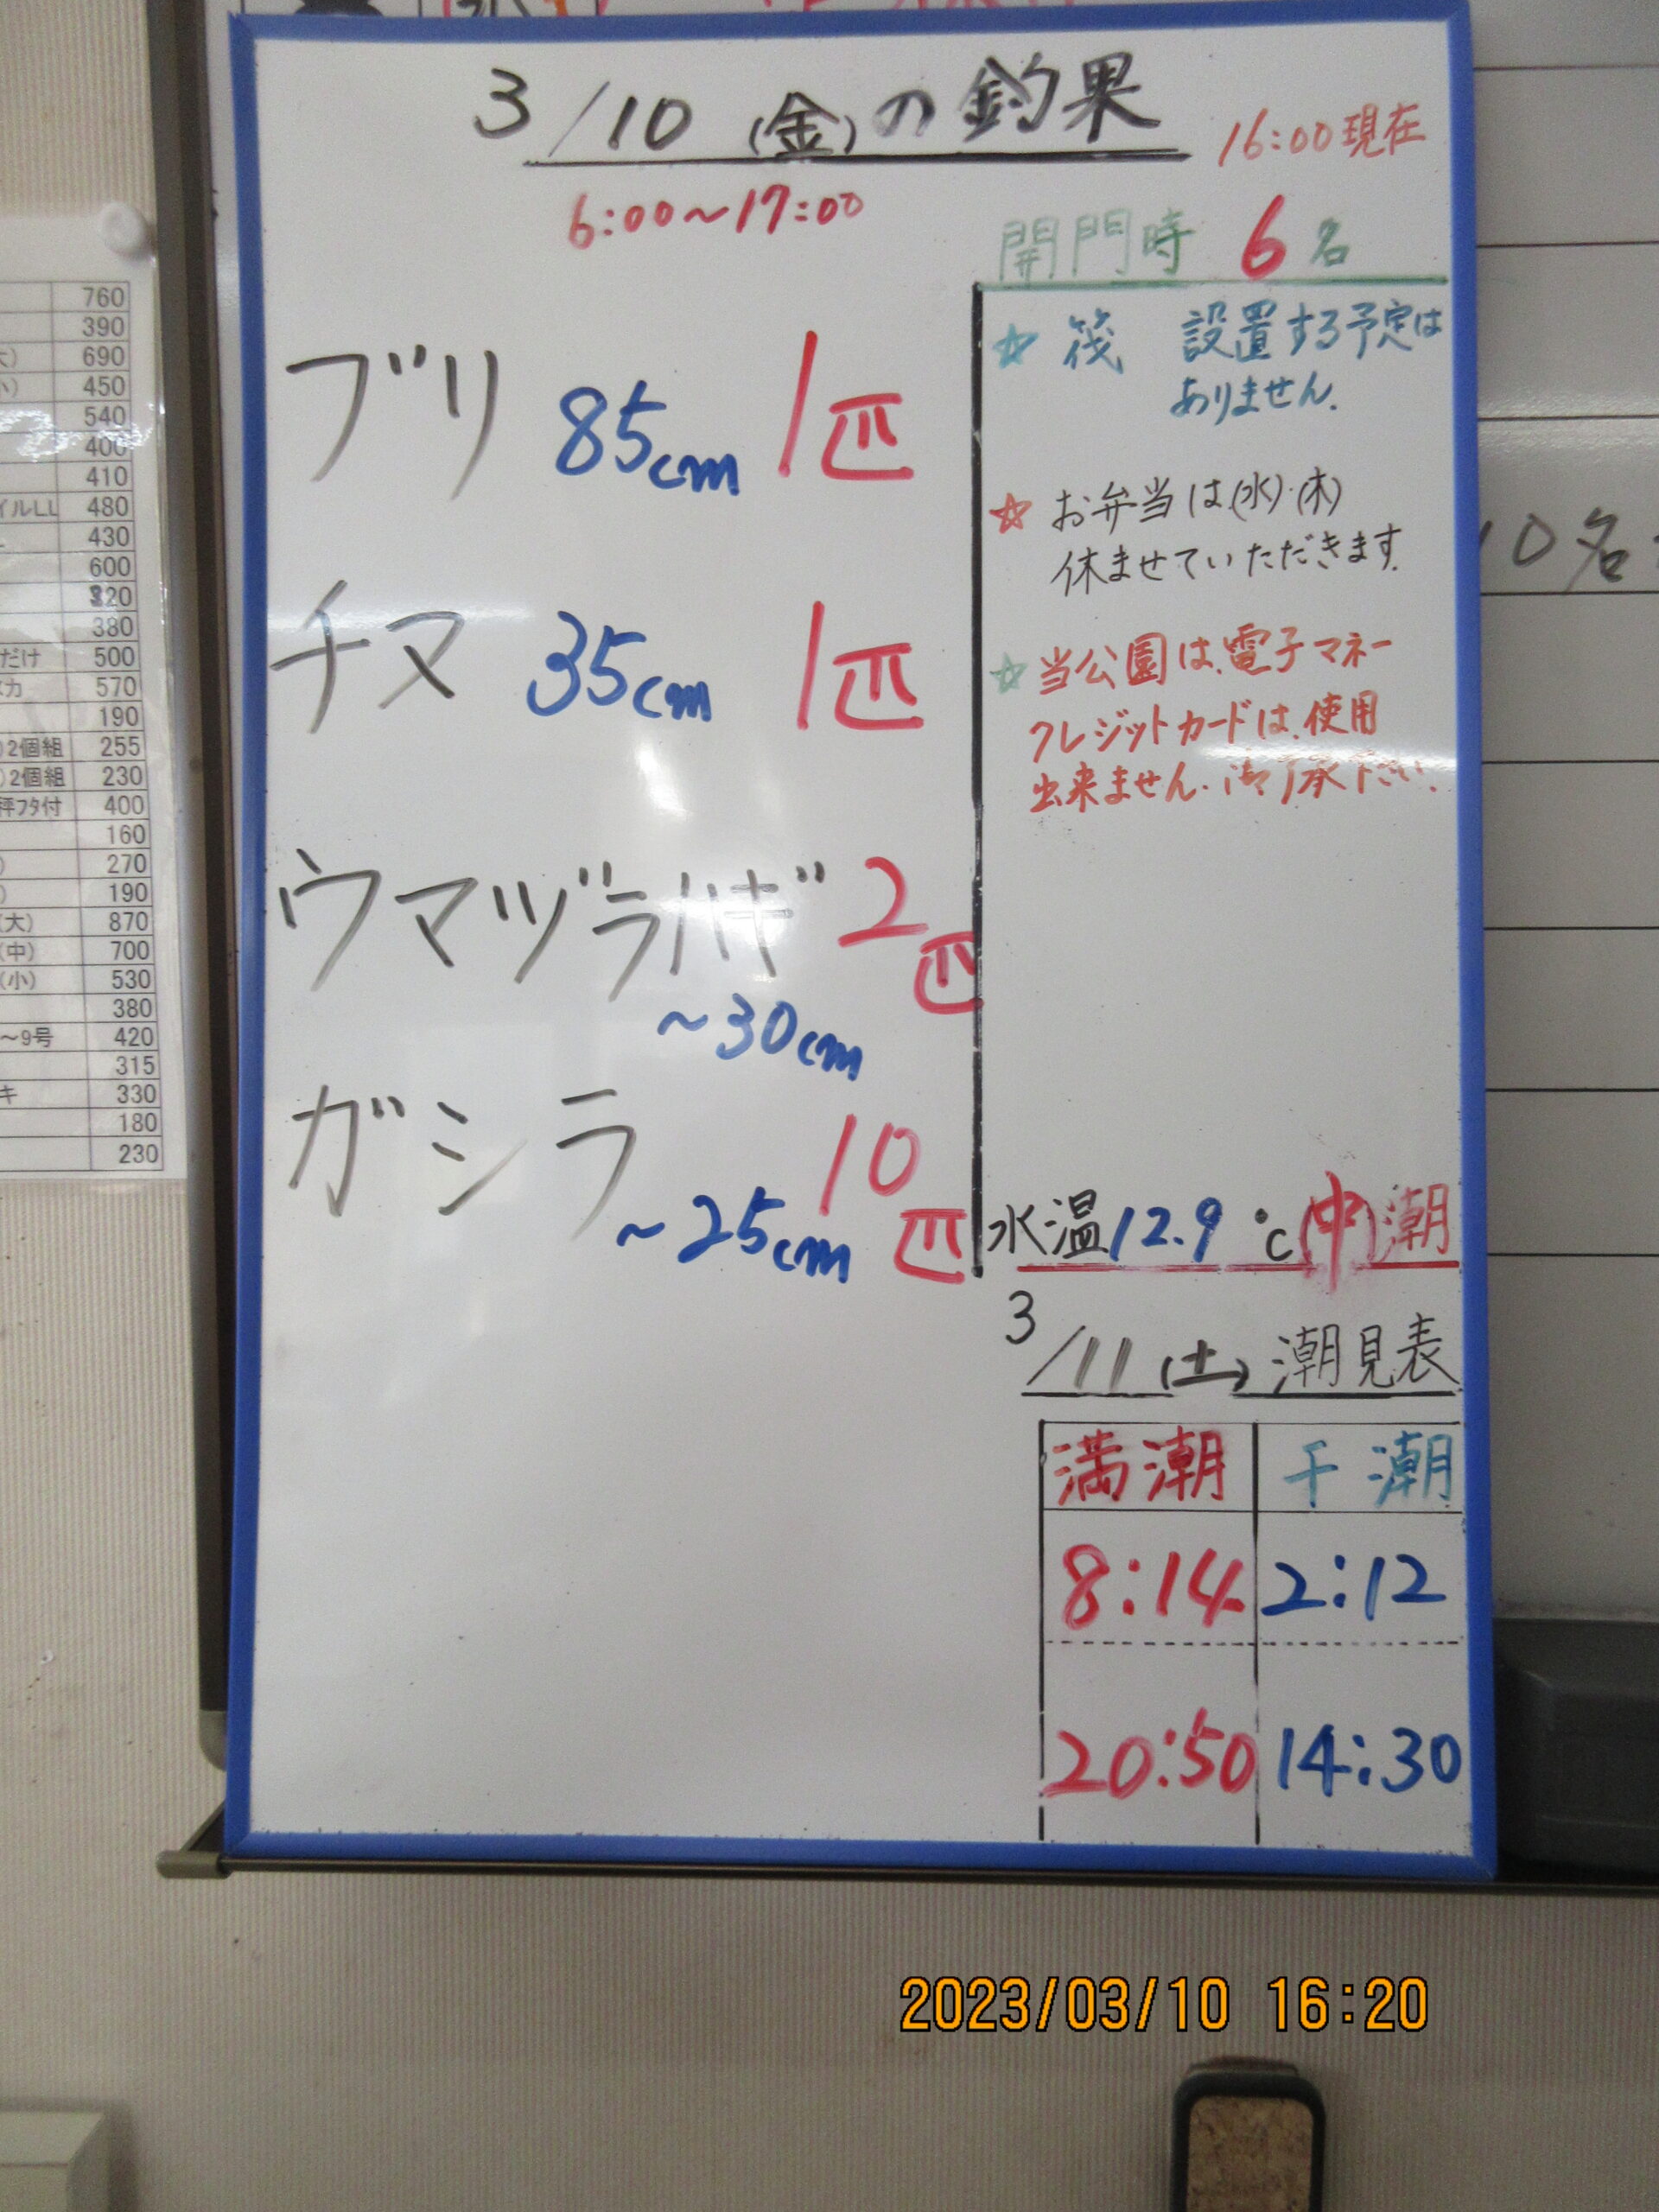 3/10(金)の釣果
16:00現在
6:00～17:00
開門時 6名
ブリ 85cm 1匹
チヌ 35cm 1匹
ウマヅラハギ 2匹
～30cm
ガシラ 10匹
～25cm
☆筏 設置する予定は
ありません.
☆お弁当は(水)・(木)
休ませていただきます.
☆当公園は、電子マネー
クレジットカードは、使用
出来ません. 御了承下さい.
水温12.9℃ (中)潮
3/11(土)潮見表
満潮 干潮
8:14 2:12
20:50 14:30
10名
760
390
690
450
540
400
410
イルLL 480
430
600
320
380
だけ 500
570
190
2個組 255
2個組 230
秤フタ付 400
160
270
190
(大) 870
(中) 700
(小) 530
380
～9号 420
315
キ 330
180
230
2023/03/10 16:20